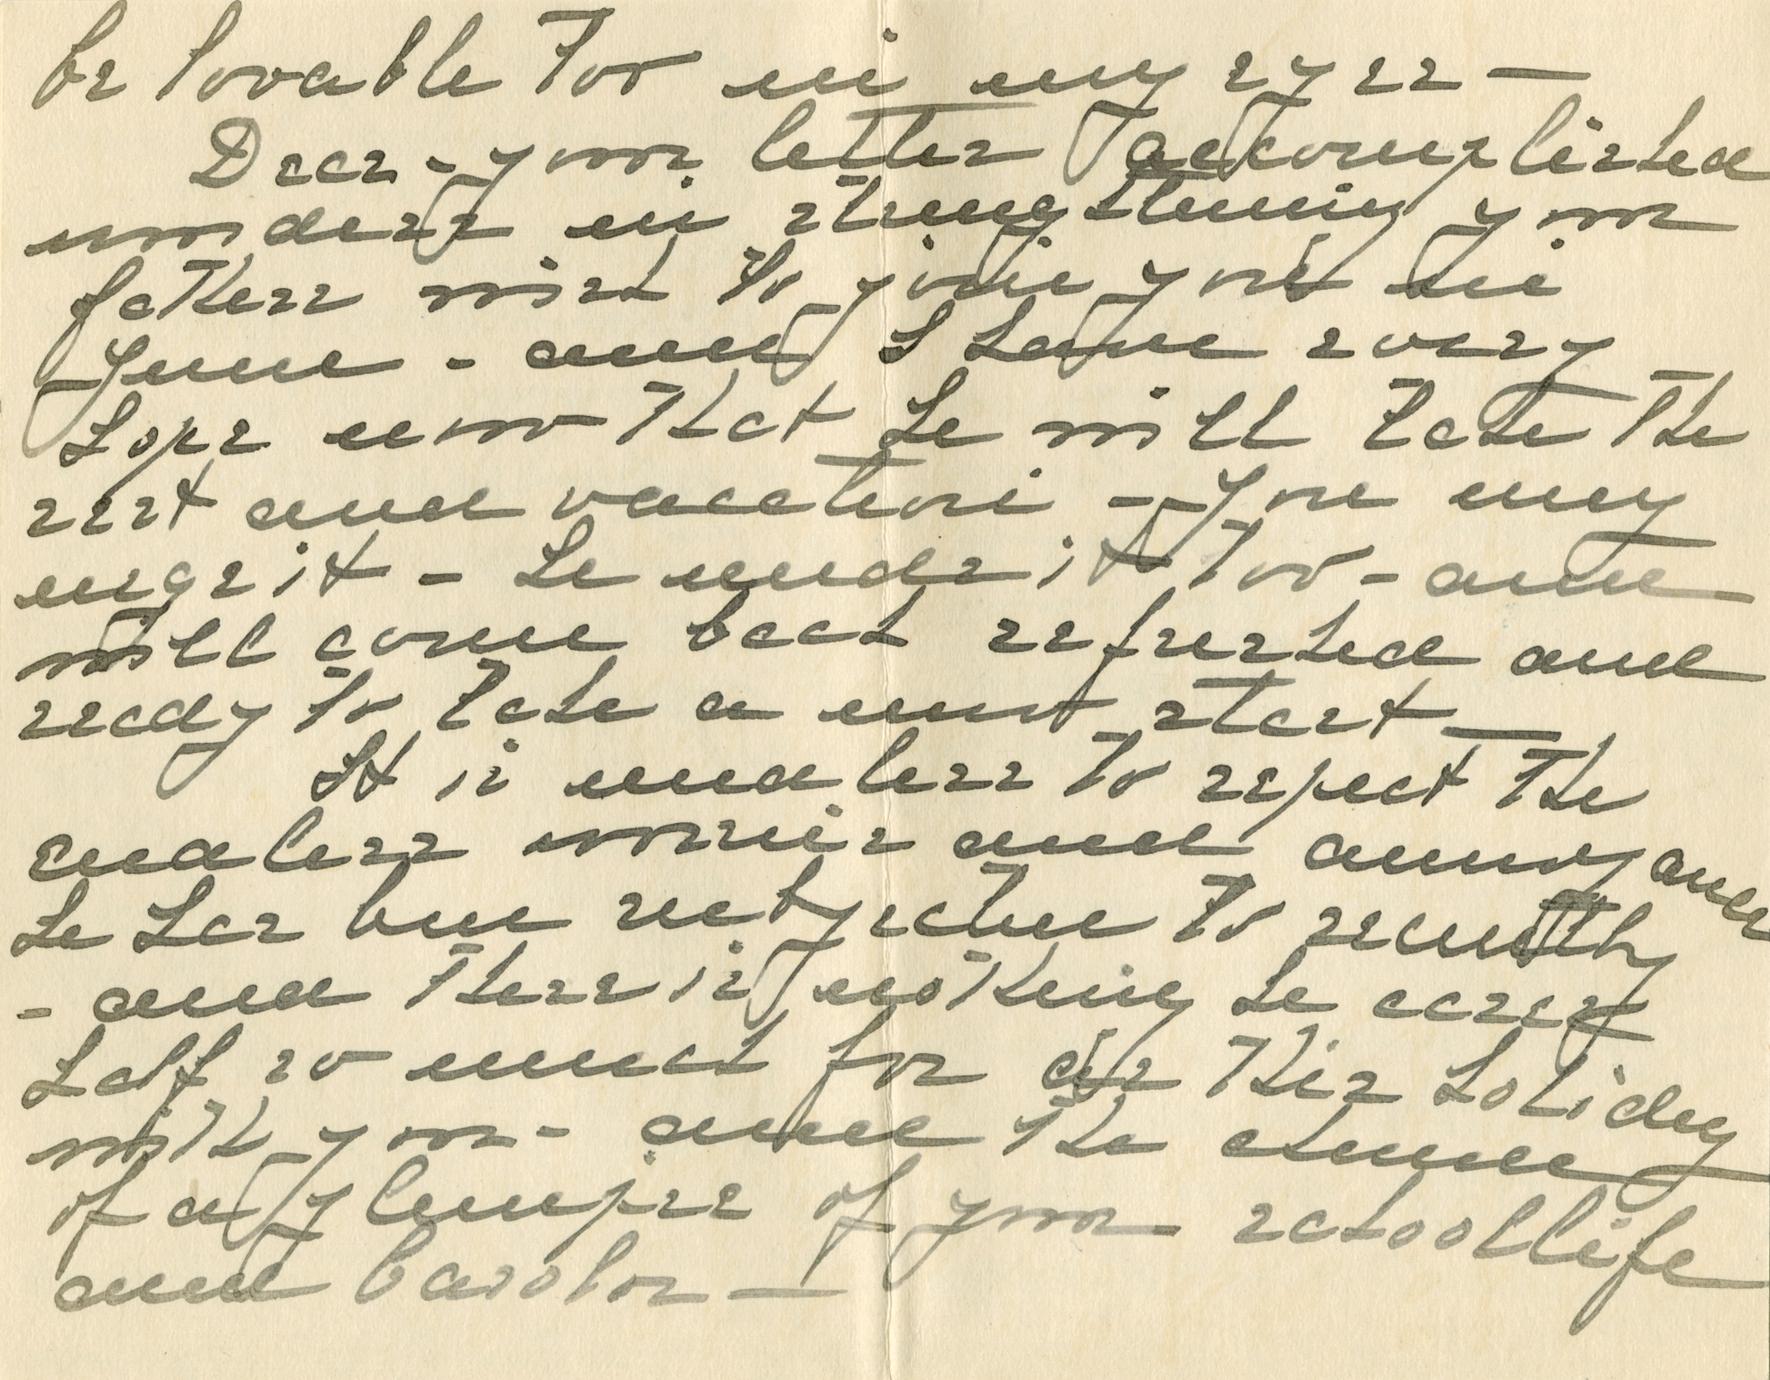 be lovable too in my eyes —
Dear - your letter accomplished
wonders in strengthening your
fathers wish to join you in
June - and I have every
hope now that he will take the
rest and vacation - You my
urge it - he needs it too - and
will come back refreshed and
ready to take a new start —
It is useless to repeat the
endless worries and annoyances
he has been subjected to recently
- and there is nothing he cares
half so much for as this holiday
with you - and the chance
of a glimpse of your school life
and